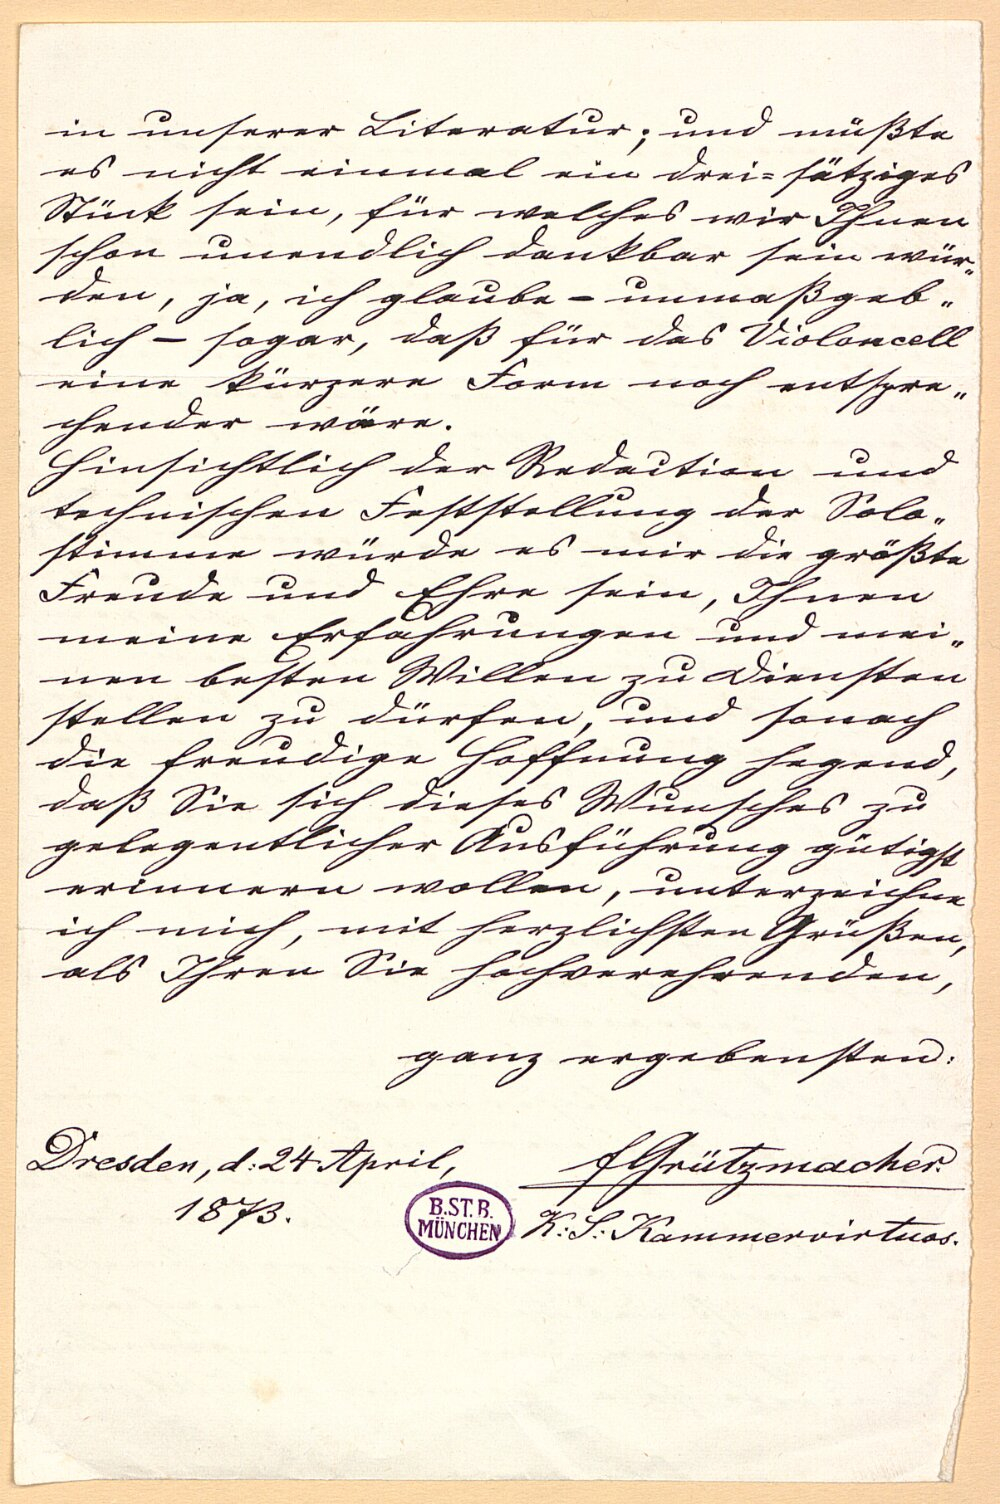 in unserer Literatur; und müßte
es nicht einmal ein drei=sätziges
Stück sein, für welches wir Ihnen
schon unendlich dankbar sein wür„
den, ja, ich glaube – unmaßgeb„
lich – sogar, daß für das Violoncell
eine kürzere Form noch entspre„
chender wäre.
Hinsichtlich der Redaction und
technischen Feststellung der Solo„
stimme würde es mir die größte
Freude und Ehre sein, Ihnen
meine Erfahrungen und mei„
nen besten Willen zu Diensten
stellen zu dürfen, und sonach
die freudige Hoffnung hegend,
daß Sie sich dieses Wunsches zu
gelegentlicher Ausführung gütigst
erinnern wollen, unterzeichne
ich mich, mit herzlichsten Grüßen,
als Ihren Sie hochverehrenden,
ganz ergebensten:
Dresden, d: 24 April,
1873.
FGrützmacher.
K: S: Kammervirtuos.
B.ST.B.
MÜNCHEN